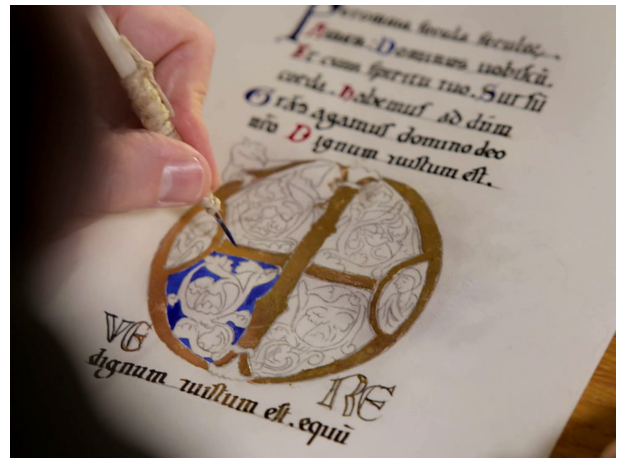 Per omnia secula seculoꝝ.
Amen. Dominus uobiscū.
Et cum spiritu tuo. Sursū
corda. habemus ad dnm
Grās agamus domino deo
nrō Dignum iustum est.
VE RE
dignum iustum est. equū